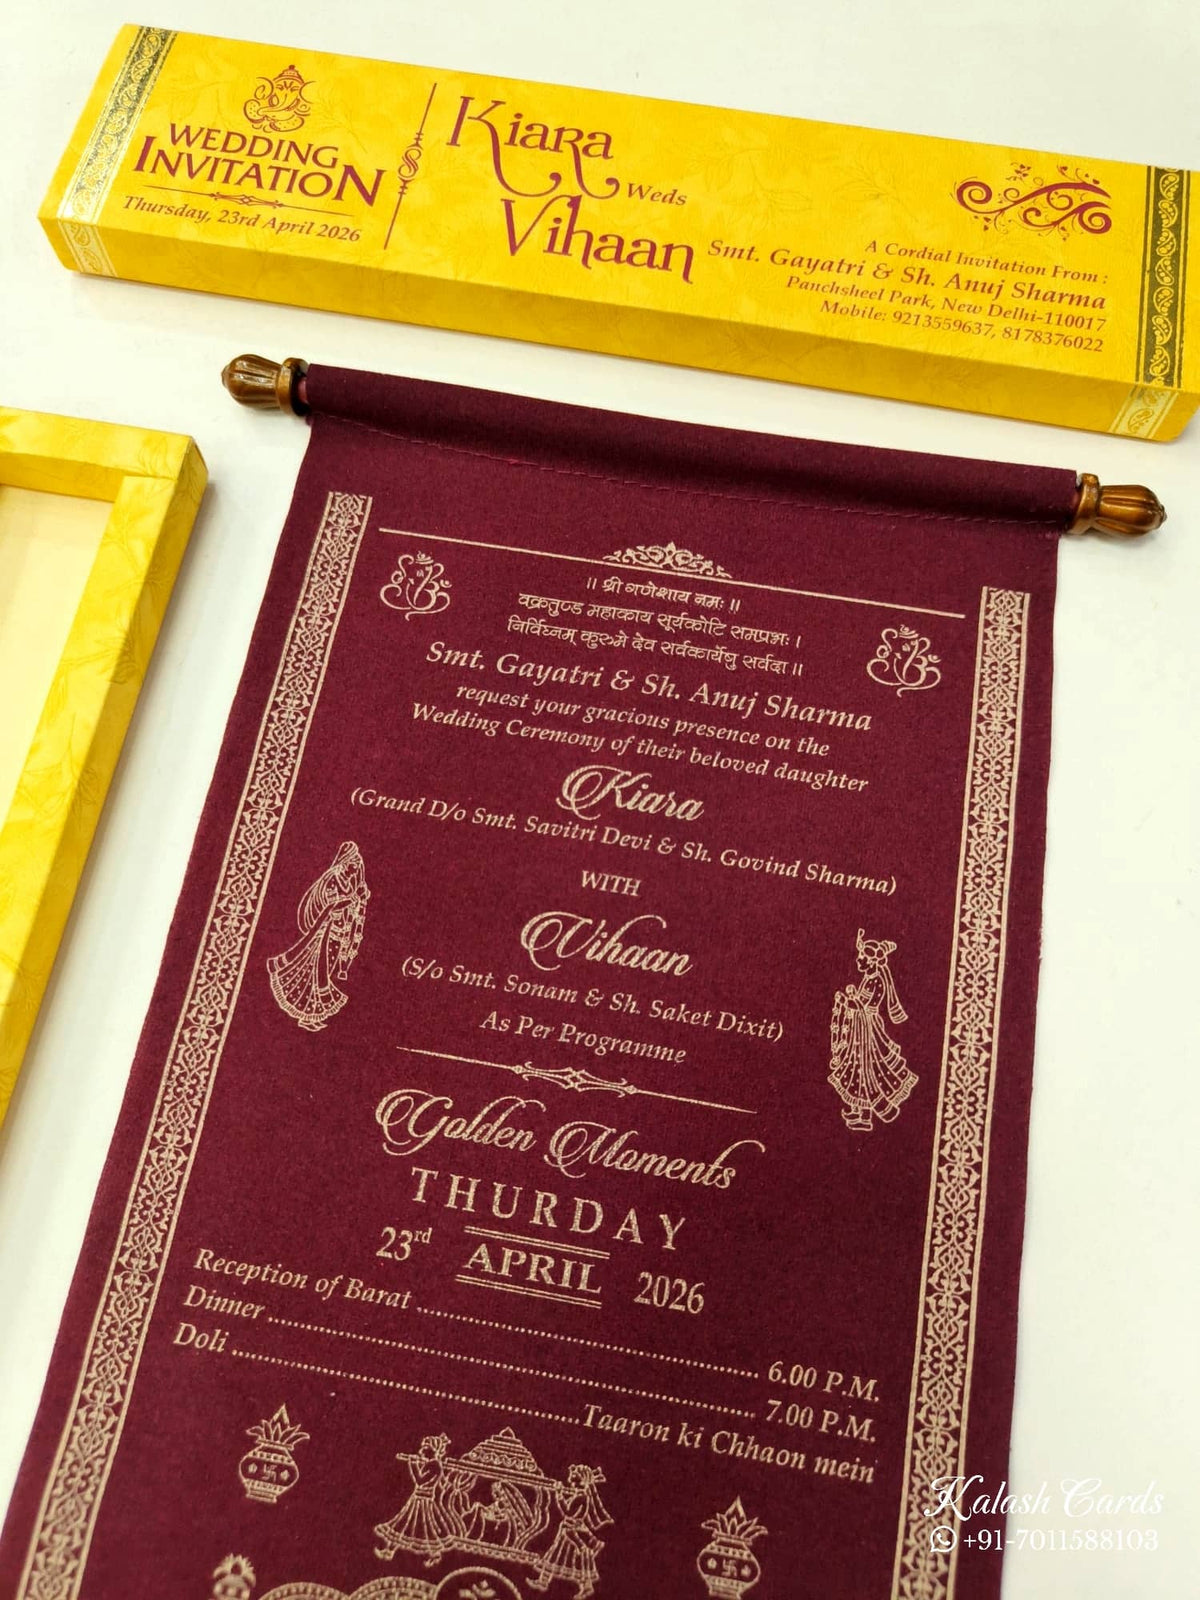 WEDDING
INVITATION
Thursday, 23rd April 2026
Kiara
Weds
Vihaan
A Cordial Invitation From :
Smt. Gayatri & Sh. Anuj Sharma
Panchsheel Park, New Delhi-110017
Mobile: 9213559637, 8178376022
।। श्री गणेशाय नमः ।।
वक्रतुण्ड महाकाय सूर्यकोटि समप्रभः ।
निर्विघ्नम् कुरुमे देव सर्वकार्येषु सर्वदा ।।
Smt. Gayatri & Sh. Anuj Sharma
request your gracious presence on the
Wedding Ceremony of their beloved daughter
Kiara
(Grand D/o Smt. Savitri Devi & Sh. Govind Sharma)
WITH
Vihaan
(S/o Smt. Sonam & Sh. Saket Dixit)
As Per Programme
Golden Moments
THURDAY
23rd APRIL 2026
Reception of Barat ........................ 6.00 P.M.
Dinner ........................ 7.00 P.M.
Doli ........................ Taaron ki Chhaon mein
ॐ
Kalash Cards
+91-7011588103